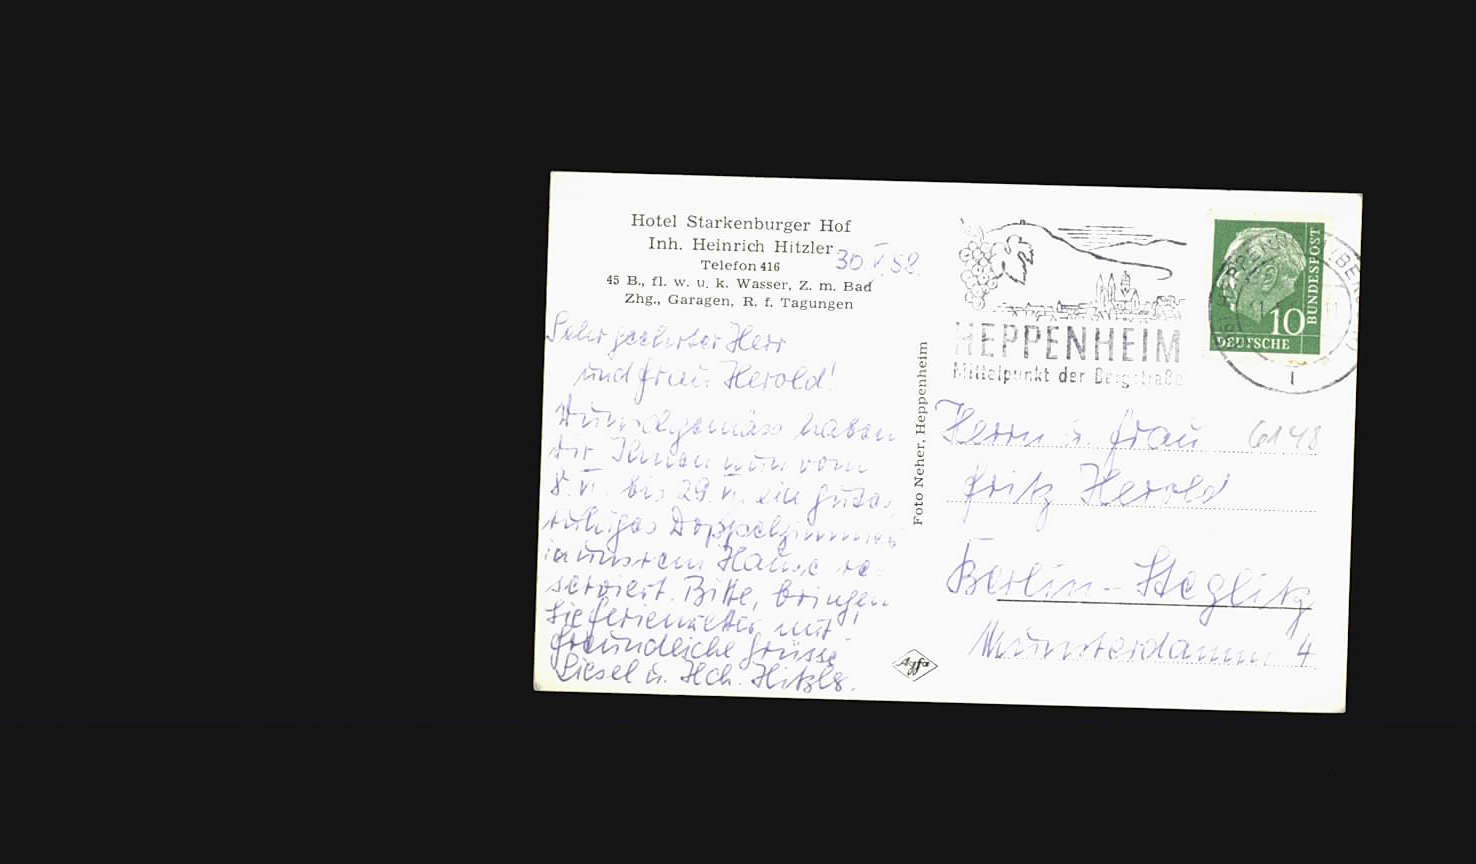 Hotel Starkenburger Hof
Inh. Heinrich Hitzler
Telefon 416
45 B., fl. w. u. k. Wasser, Z. m. Bad
Zhg., Garagen, R. f. Tagungen
30.V.58.
Sehr geehrter Herr
und Frau Herold!
Wunschgemäss haben
wir Ihnen nun vom
8.VI. bis 29.VI. ein gutes
ruhiges Doppelzimmer
in unsrem Hause re-
serviert. Bitte, bringen
Sie Ferienwetter mit!
Freundliche Grüsse
Liesel u. Hch. Hitzler.
Foto Neher, Heppenheim
Agfa
HEPPENHEIM
Mittelpunkt der Bergstraße
BUNDESPOST
10
DEUTSCHE
Herrn u. Frau 6148
Fritz Herold
Berlin-Steglitz
Munsterdamm 4